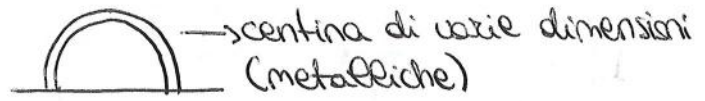 centina di varie dimensioni
(metalliche)